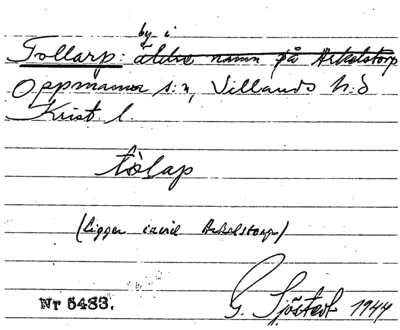 by i
Tollarp: äldre namn på Arkelstorp
Oppmanna s:n, Villands h:d
Krist l.
tòlap
(ligger invid Arkelstorp)
Nr 5483.
G. Sjöstedt 1944